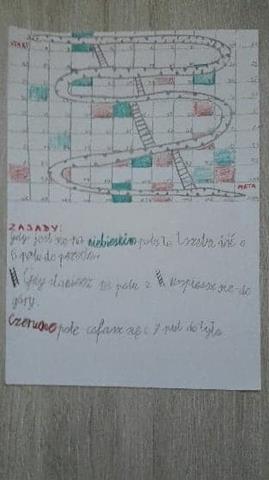 START
META
ZASADY:
Gdy jest się na niebieskim polu to trzeba iść o
6 pola do przodu.
Gdy staniesz na polu z wspinasz się do
góry.
Czerwone pole cofasz się o 7 pól do tyłu